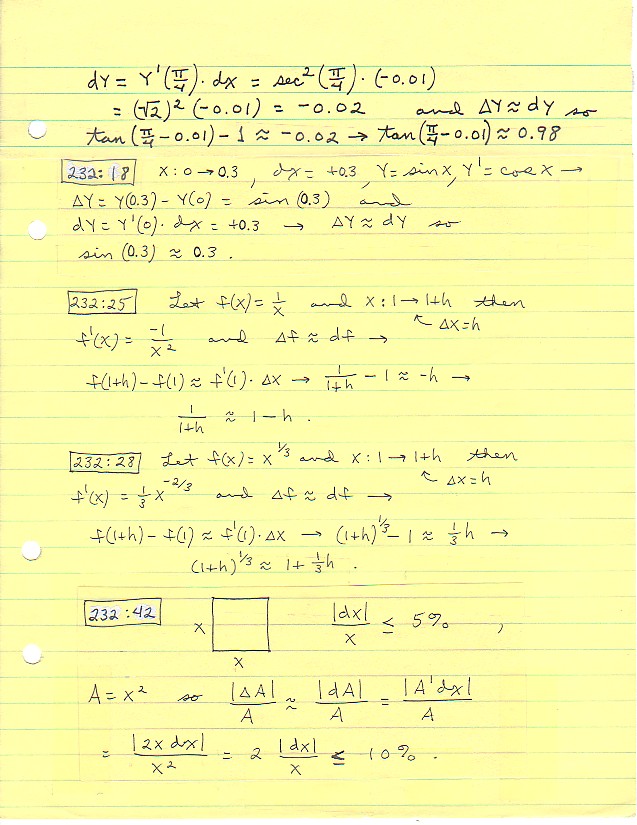 dY = Y'(π/4) · dx = sec²(π/4) · (-0.01)
= (√2)² (-0.01) = -0.02 and ΔY ≈ dY so
tan(π/4 - 0.01) - 1 ≈ -0.02 → tan(π/4 - 0.01) ≈ 0.98
232:18 X: 0 → 0.3, dx = +0.3, Y = sin x, Y' = cos x →
ΔY = Y(0.3) - Y(0) = sin (0.3) and
dY = Y'(0) · dx = +0.3 → ΔY ≈ dY so
sin (0.3) ≈ 0.3 .
232:25 Let f(x) = 1/x and x: 1 → 1+h then
↖ Δx=h
f'(x) = -1/x² and Δf ≈ df →
f(1+h) - f(1) ≈ f'(1) · Δx → 1/(1+h) - 1 ≈ -h →
1/(1+h) ≈ 1 - h .
232:28 Let f(x) = x^(1/3) and x: 1 → 1+h then
↖ Δx=h
f'(x) = 1/3 x^(-2/3) and Δf ≈ df →
f(1+h) - f(1) ≈ f'(1) · Δx → (1+h)^(1/3) - 1 ≈ 1/3 h →
(1+h)^(1/3) ≈ 1 + 1/3 h .
232:42 x |dx|/x ≤ 5% ,
x
A = x² so |ΔA|/A ≈ |dA|/A = |A'dx|/A
= |2x dx|/x² = 2 |dx|/x ≤ 10% .